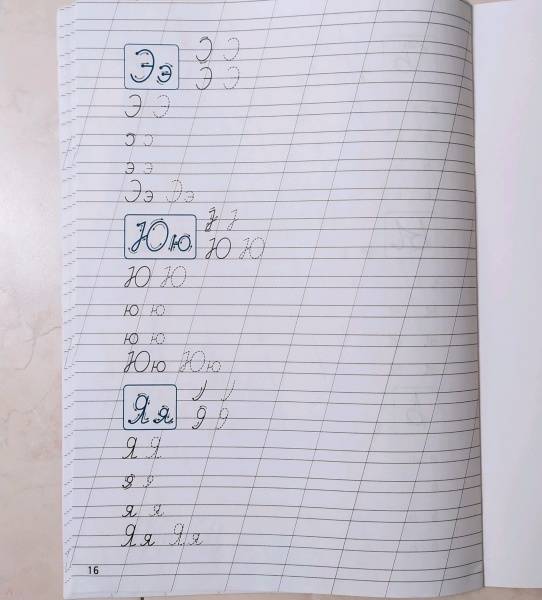 Ээ
Э Э
Э Э
э э
Ээ Ээ
Юю
Ю Ю
Ю Ю
ю ю
ю ю
Юю Юю
Яя
Я Я
я я
Яя Яя
16